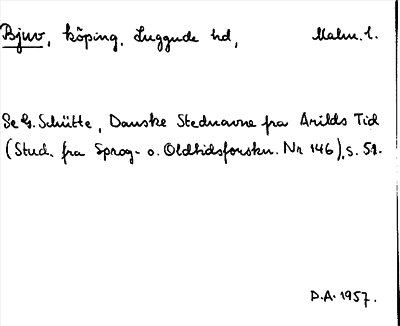 Bjuv, köping, Luggude hd, Malm. l.
Se G. Schütte, Danske Stednavne fra Arilds Tid
(Stud. fra Sprog- o. Oldtidsforskn. Nr 146), s. 51.
D.A. 1957.